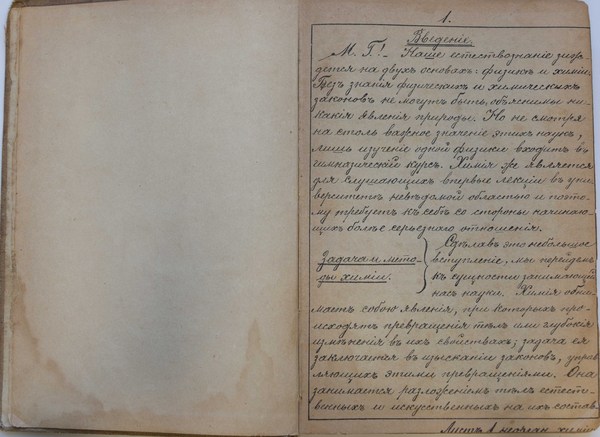 1.
Введеніе.
М. Г.! – Наше естествознаніе зиж-
дется на двухъ основахъ: физикѣ и химіи.
Безъ знанія физическихъ и химическихъ
законовъ не могутъ быть объяснимы ни-
какія явленія природы. Но не смотря
на столь важное значеніе этихъ наукъ,
лишь изученіе одной физики входитъ въ
гимназическій курсъ. Химія же является
для слушающихъ впервые лекціи въ уни-
верситетѣ невѣдомой областью и пото-
му требуетъ къ себѣ со стороны начинаю-
щихъ болѣе серьезнаго отношенія.
Задача и мето-
ды химіи.
Сдѣлавъ это небольшое
вступленіе, мы перейдемъ
къ сущности занимающей
насъ науки. Химія обни-
маетъ собою явленія, при которыхъ про-
исходятъ превращенія тѣлъ или глубокія
измѣненія въ ихъ свойствахъ; задача ея
заключается въ изысканіи законовъ, управ-
ляющихъ этими превращеніями. Она
занимается разложеніемъ тѣлъ естест-
венныхъ и искусственныхъ на ихъ состав
Листъ 1 неорган. химіи